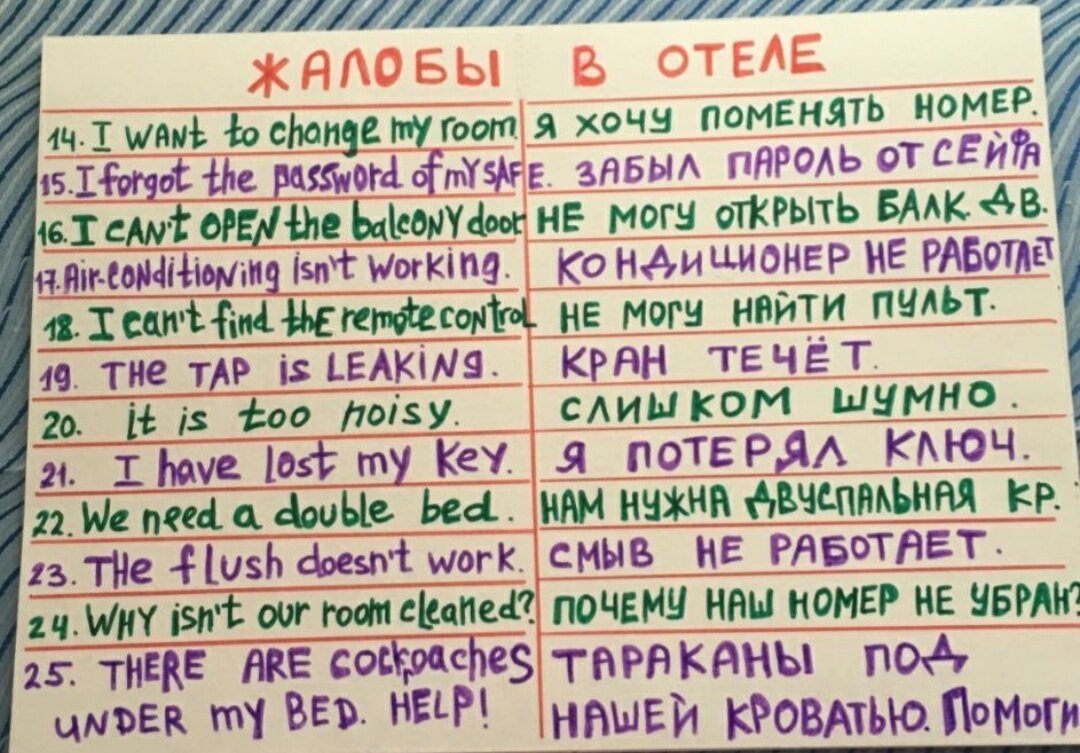 ЖАЛОБЫ В ОТЕЛЕ
14. I WANt to change my room. Я ХОЧУ ПОМЕНЯТЬ НОМЕР.
15. I forgot the password of mY SAFE. ЗАБЫЛ ПАРОЛЬ ОТ СЕЙФА
16. I CAN't OPEN the balcoNY door НЕ МОГУ ОТКРЫТЬ БАЛК. ДВ.
17. Air-coNditioNing isn't working. КОНДИЦИОНЕР НЕ РАБОТАЕТ
18. I can't find thE remote coNtrol НЕ МОГУ НАЙТИ ПУЛЬТ.
19. THe TAP is LEAKiNg. КРАН ТЕЧЁТ.
20. it is too noisy. СЛИШКОМ ШУМНО.
21. I have lost my key. Я ПОТЕРЯЛ КЛЮЧ.
22. We need a double bed. НАМ НУЖНА ДВУСПАЛЬНАЯ КР.
23. THe flush doesn't work. СМЫВ НЕ РАБОТАЕТ.
24. WHY isn't our room cleaned? ПОЧЕМУ НАШ НОМЕР НЕ УБРАН?
25. THERE ARE cockroaches ТАРАКАНЫ ПОД
UNDER mY BED. HELP! НАШЕЙ КРОВАТЬЮ. ПОМОГИ